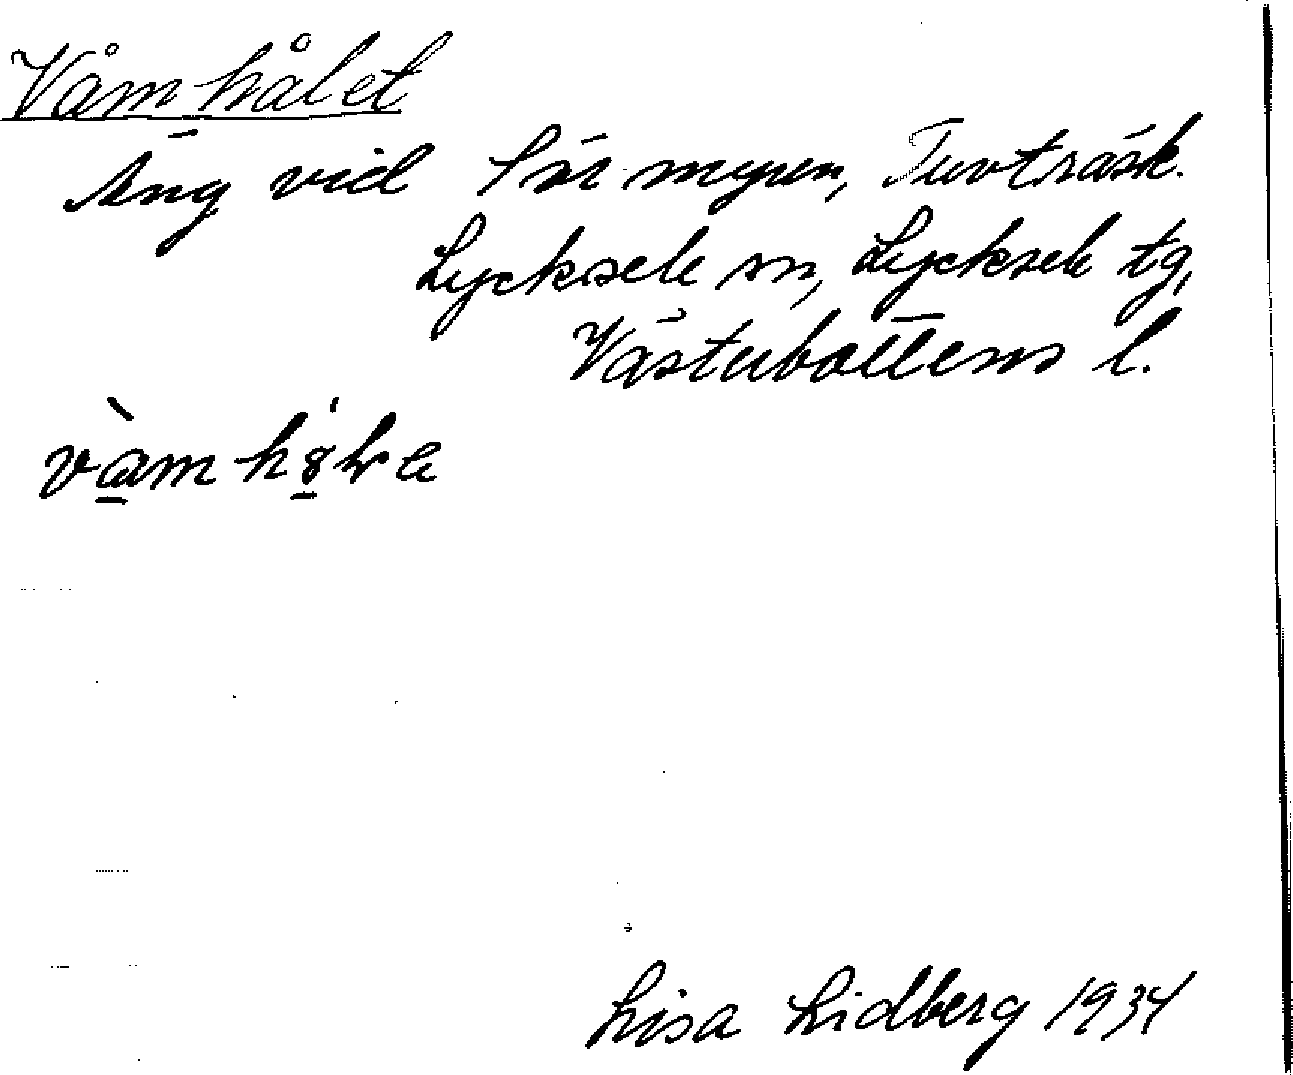 Våmhålet
Äng vid myren, Tuvträsk.
Lycksele sn, Lycksele tg,
Västerbottens l.
Lisa Lidberg 1934